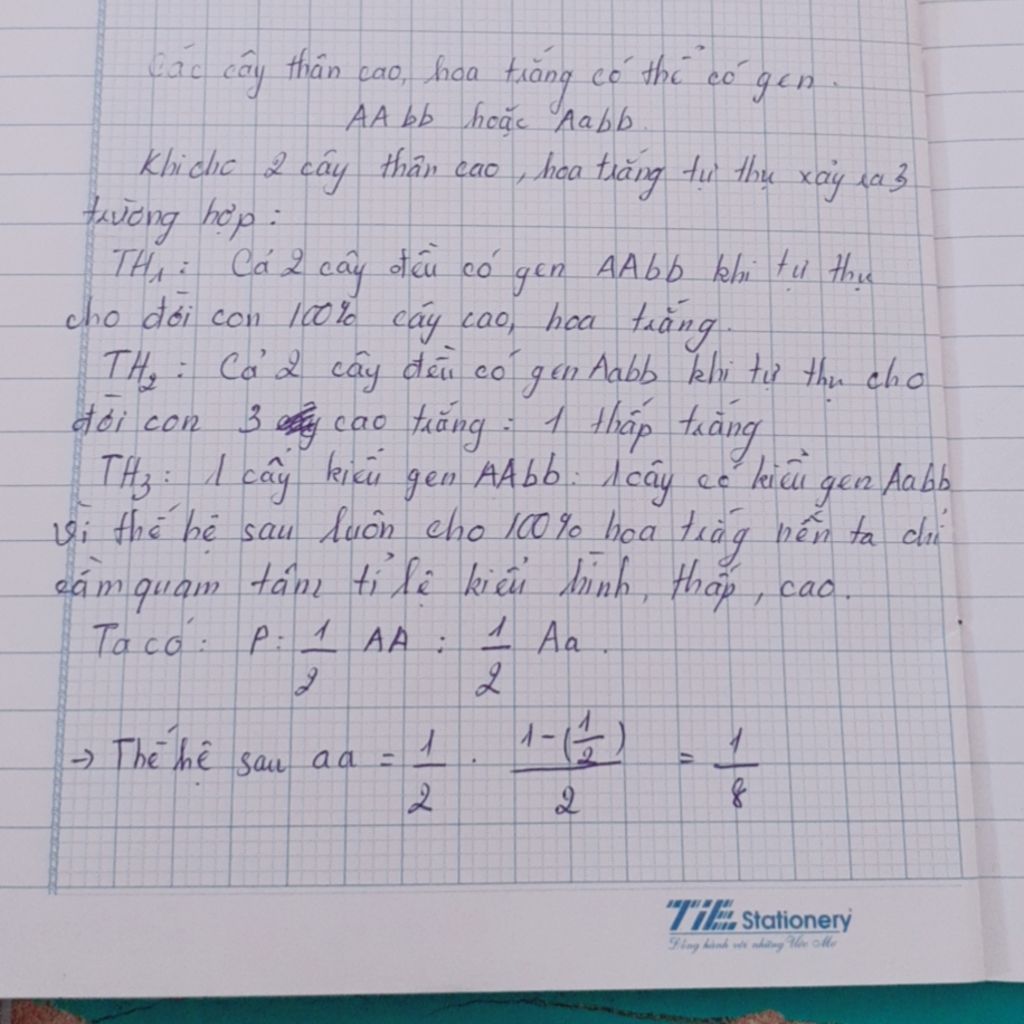 Các cây thân cao, hoa trắng có thể có gen.
AAbb hoặc Aabb.
Khi cho 2 cây thân cao, hoa trắng tự thụ xảy ra 3
trường hợp:
TH1: Cả 2 cây đều có gen AAbb khi tự thụ
cho đời con 100% cây cao, hoa trắng.
TH2: Cả 2 cây đều có gen Aabb khi tự thụ cho
đời con 3 cao trắng: 1 thấp trắng
TH3: 1 cây kiểu gen AAbb: 1 cây có kiểu gen Aabb
Vì thế hệ sau luôn cho 100% hoa trắg nên ta chỉ
cầm quam tâm tỉ lệ kiểu hình, thấp, cao.
Ta có: P: 1/2 AA : 1/2 Aa.
→ Thế hệ sau aa = 1/2 . (1-(1/2))/2 = 1/8
TiE Stationery
Đồng hành với những Ước Mơ